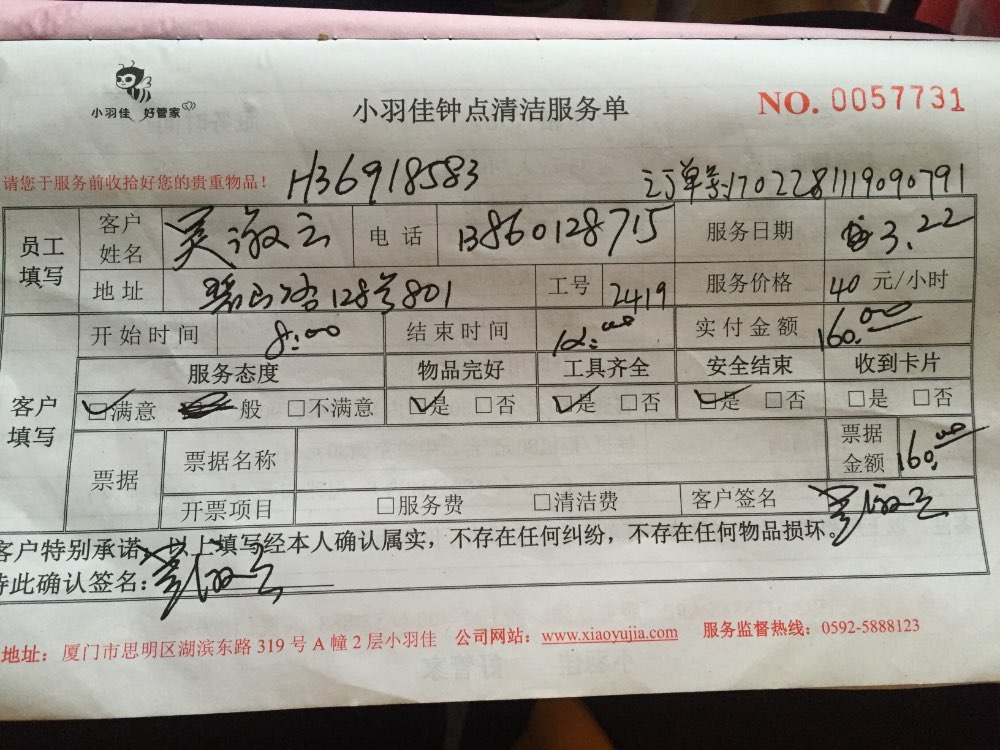 小羽佳 好管家
小羽佳钟点清洁服务单
NO. 0057731
请您于服务前收拾好您的贵重物品！
H36918583
订单号:1702281119090791
员工填写
客户姓名
电话 13860128715
服务日期 3.22
地址 128号801
工号 2419
服务价格 40 元/小时
客户填写
开始时间 8:00
结束时间 12:00
实付金额 160.00
服务态度 物品完好 工具齐全 安全结束 收到卡片
☑满意 般 □不满意 ☑是 □否 ☑是 □否 ☑是 □否 □是 □否
票据
票据名称
票据金额 160.00
开票项目 □服务费 □清洁费 客户签名
客户特别承诺：以上填写经本人确认属实，不存在任何纠纷，不存在任何物品损坏。
特此确认签名：
地址：厦门市思明区湖滨东路 319 号 A 幢 2 层小羽佳 公司网站：www.xiaoyujia.com 服务监督热线：0592-5888123